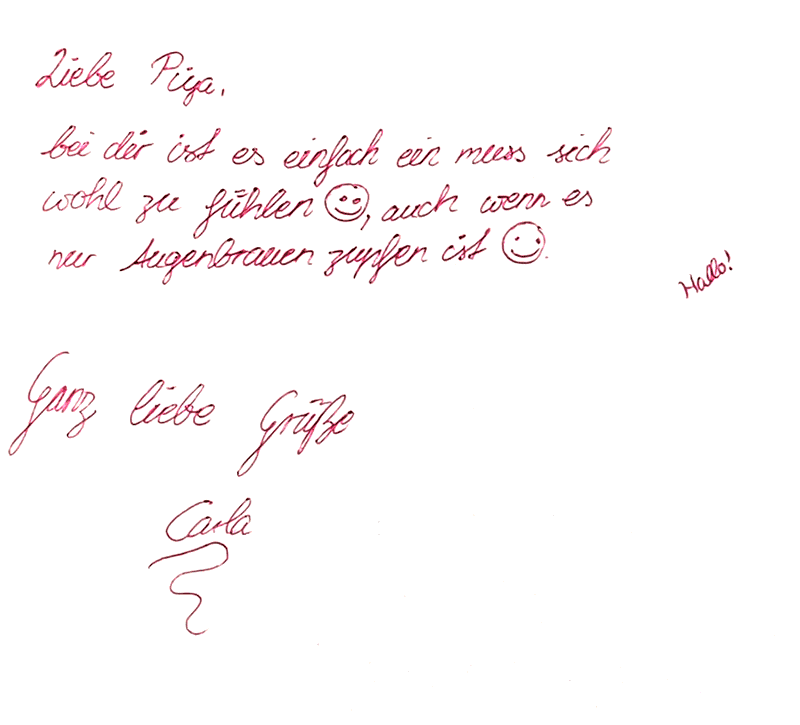 Liebe Piya,
bei dir ist es einfach ein muss sich
wohl zu fühlen 🙂, auch wenn es
nur Augenbrauen zupfen ist 🙂.
Hallo!
Ganz liebe Grüße
Carla